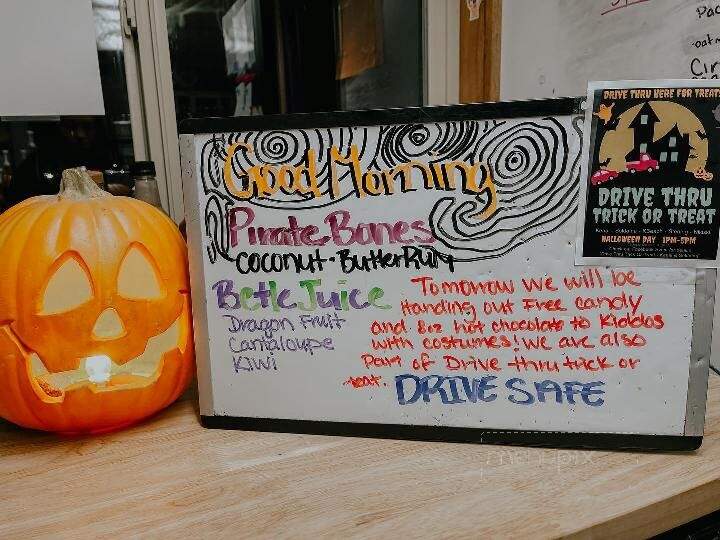 Good Morning
Pirate Bones
Coconut · Butter Rum
Betle Juice
Dragon Fruit
Cantaloupe
Kiwi
Tomorrow we will be
Handing out Free candy
and 8oz hot chocolate to Kiddos
with costumes! We are also
Part of Drive-thru trick or
teat.
DRIVE SAFE
DRIVE THRU HERE FOR TREATS
DRIVE THRU
TRICK OR TREAT
HALLOWEEN DAY 1PM-5PM
Pac
oatm
Cir